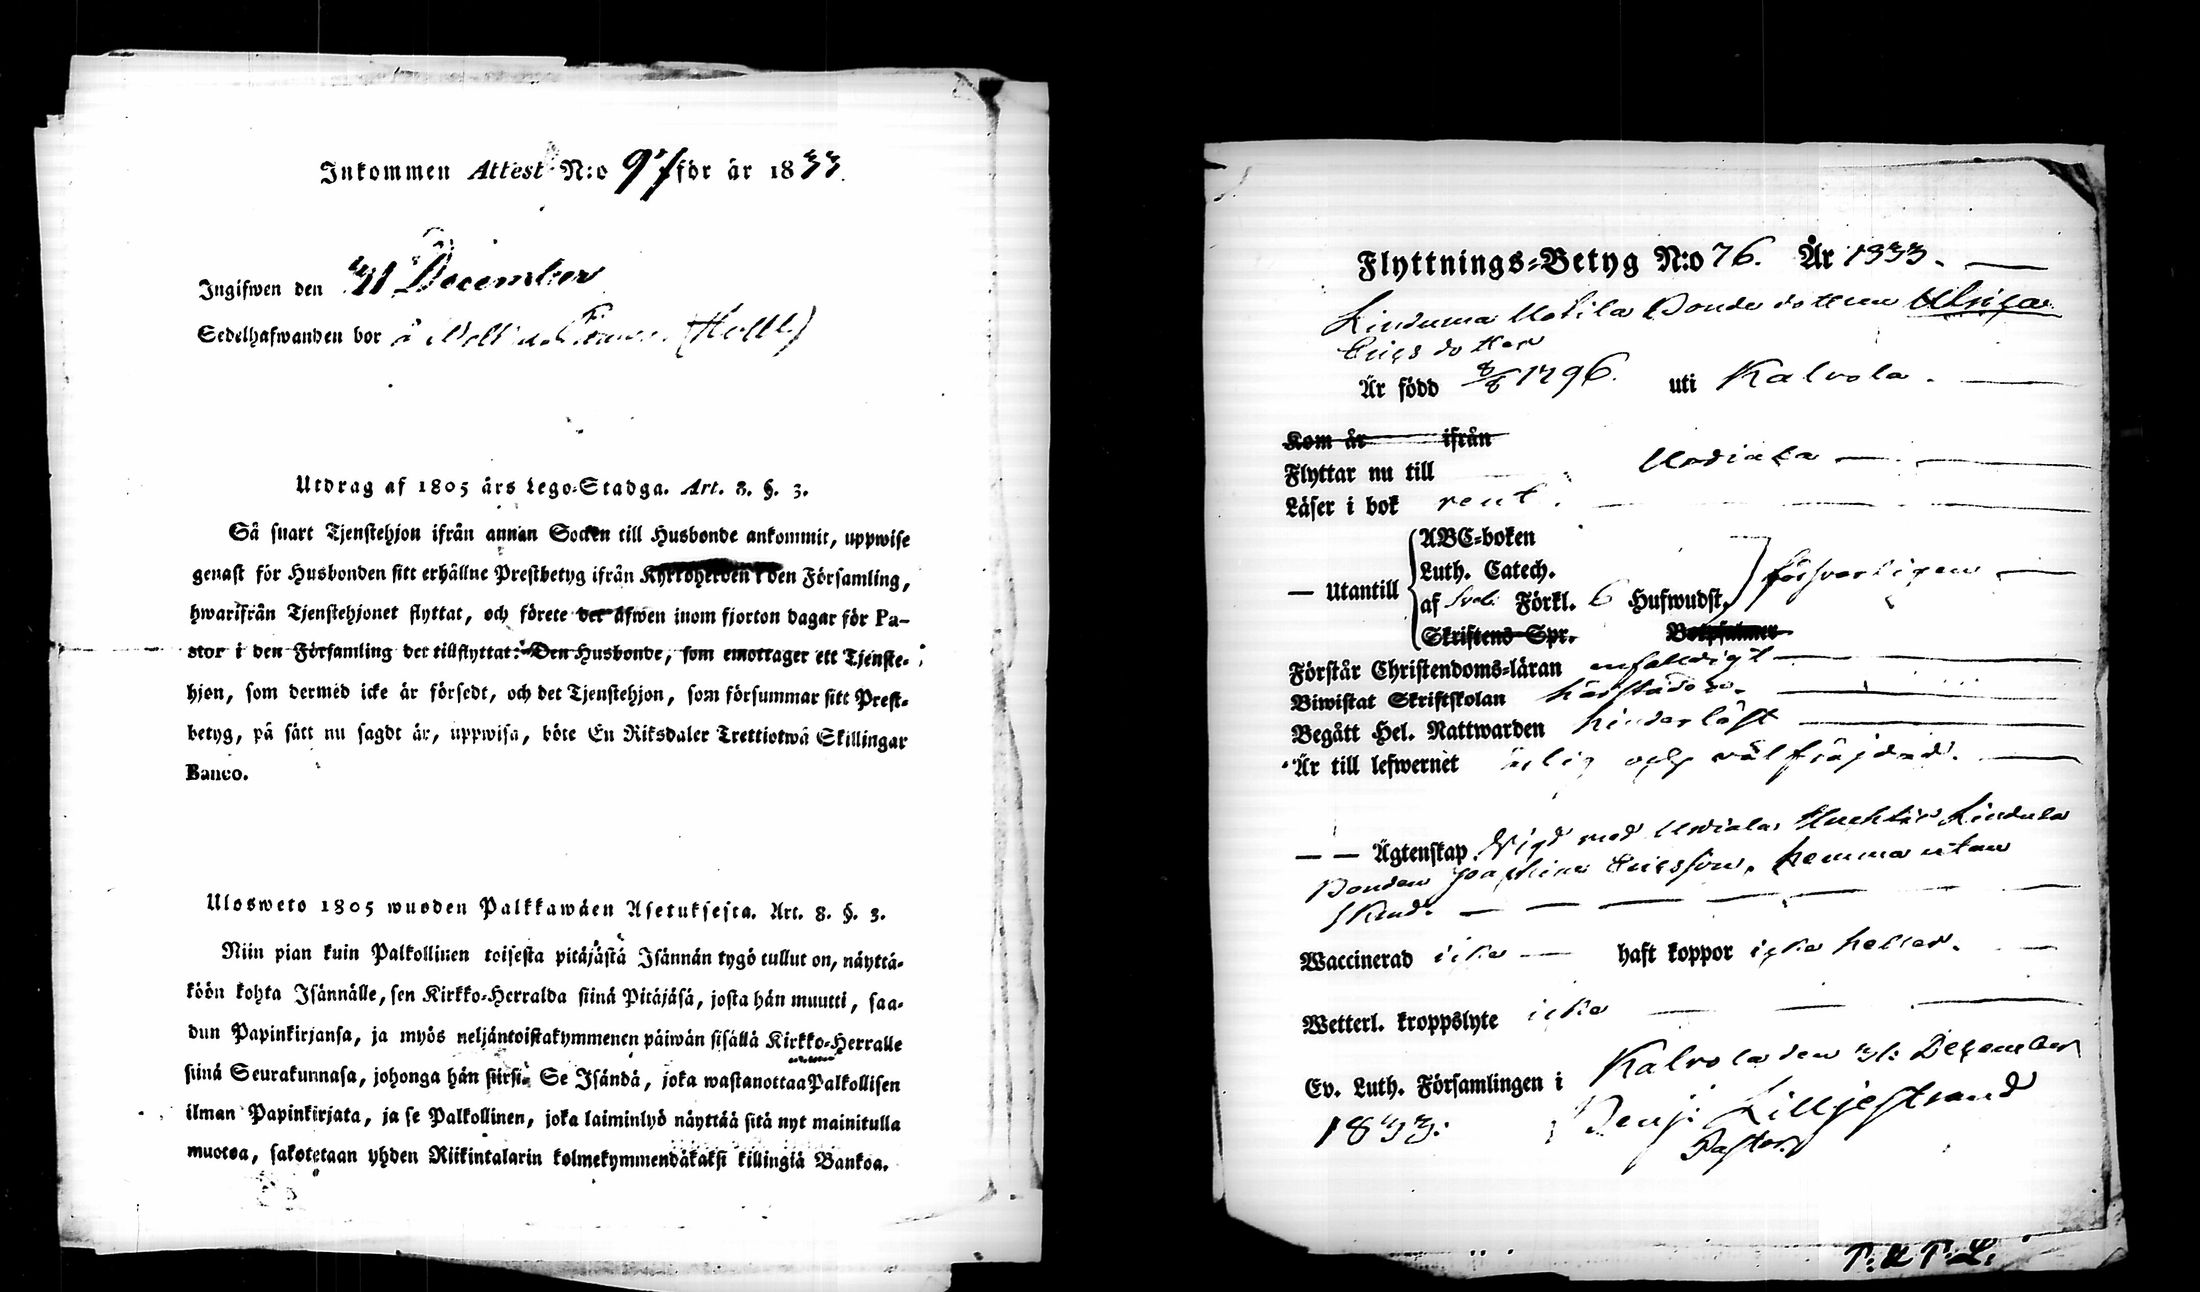 Inkommen Attest N:o 97 för år 1833.
Ingifwen den 31 December
Sedelhafwanden bor å
Utdrag af 1805 års Lego-Stadga. Art. 8. §. 3.
Så snart Tjenstehjon ifrån annan Socken till Husbonde ankommit, uppwise
genast för Husbonden sitt erhållne Prestbetyg ifrån Kyrkoherden i den Församling,
hwarifrån Tjenstehjonet flyttat, och förete det äfwen inom fjorton dagar för Pa-
stor i den Församling det tillflyttat: Den Husbonde, som emottager ett Tjenste-
hjon, som dermed icke är försedt, och det Tjenstehjon, som försummar sitt Prest-
betyg, på sätt nu sagdt är, uppwisa, böte En Riksdaler Trettiotwå Skillingar
Banco.
Ulosweto 1805 wuoden Palkkawäen Asetuksesta. Art. 8. §. 3.
Niin pian kuin Palkollinen toisesta pitäjästä Isännän tygö tullut on, näyttä-
köön kohta Isännälle, sen Kirkko-Herralda siinä Pitäjäsä, josta hän muutti, saa-
dun Papinkirjansa, ja myös neljäntoistakymmenen päiwän sisällä Kirkko-Herralle
siinä Seurakunnasa, johonga hän siirsi. Se Isändä, joka wastanottaa Palkollisen
ilman Papinkirjata, ja se Palkollinen, joka laiminlyö näyttää sitä nyt mainitulla
muotoa, sakotetaan yhden Riikintalarin kolmekymmendäkaksi killingiä Bankoa.
Flyttnings-Betyg N:o 76. År 1833.
Bonde dottren Ulrica
Ericsdotter
Är född 1796. uti Kalvola.
Kom år ifrån
Flyttar nu till Urdiala
Läser i bok rent.
— Utantill
ABC-boken
Luth. Catech.
af Sveb. Förkl. 6 Hufwudst. försvarligen
Skriftens Spr. Botpsalmer
Förstår Christendoms-läran enfaldigt
Biwistat Skriftskolan
Begått Hel. Nattwarden hinderlöst
Är till lefwernet ärlig och välfräjdad.
— — Ägtenskap Vigd med Urdiala, Lindula
Bonden Ericsson, hemma utan
Waccinerad icke haft koppor icke heller.
Wetterl. kroppslyte icke
Ev. Luth. Församlingen i Kalvola den 31: December
1833: Benj: Lilljestrand
Pastor.